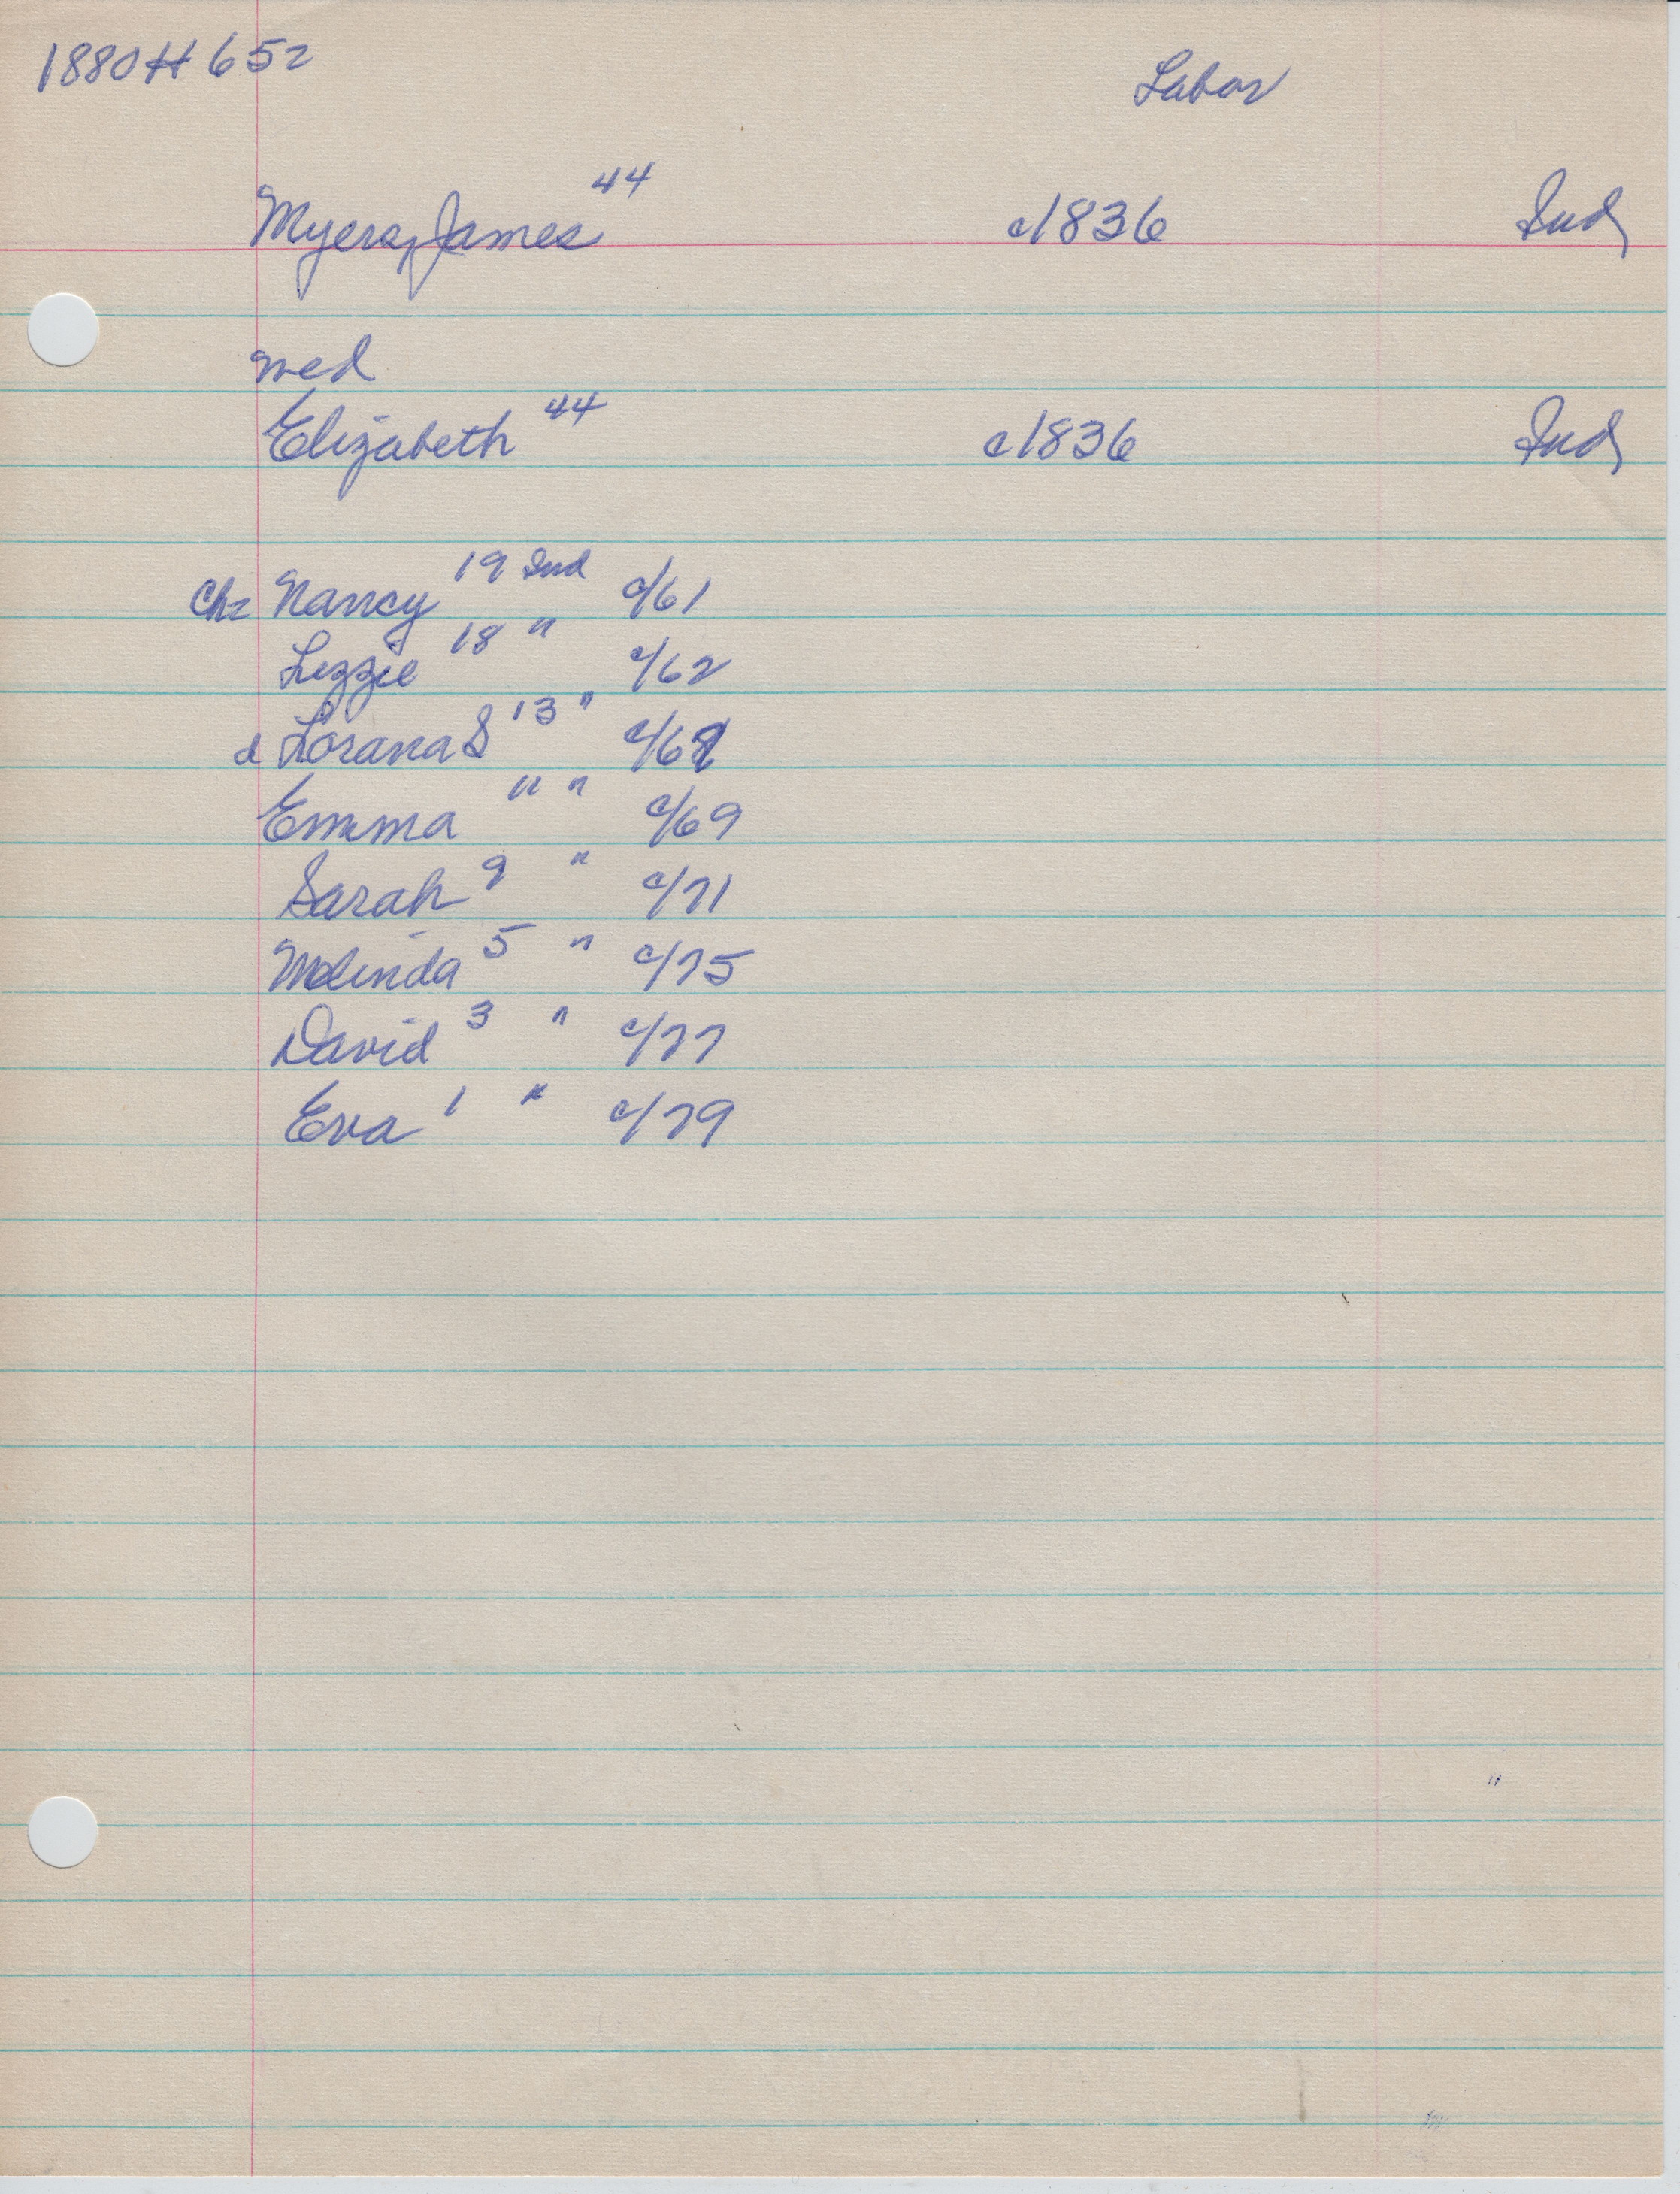 1880 H 652 Labor
Myers, James 44 c1836 Ind
med
Elizabeth 44 c1836 Ind
Ch: Nancy 19 Ind c/61
Lizzie 18 " c/62
d Lorana S 13 "
Emma 11 " c/69
Sarah 9 " c/71
Melinda 5 " c/75
David 3 " c/77
Eva 1 " c/79